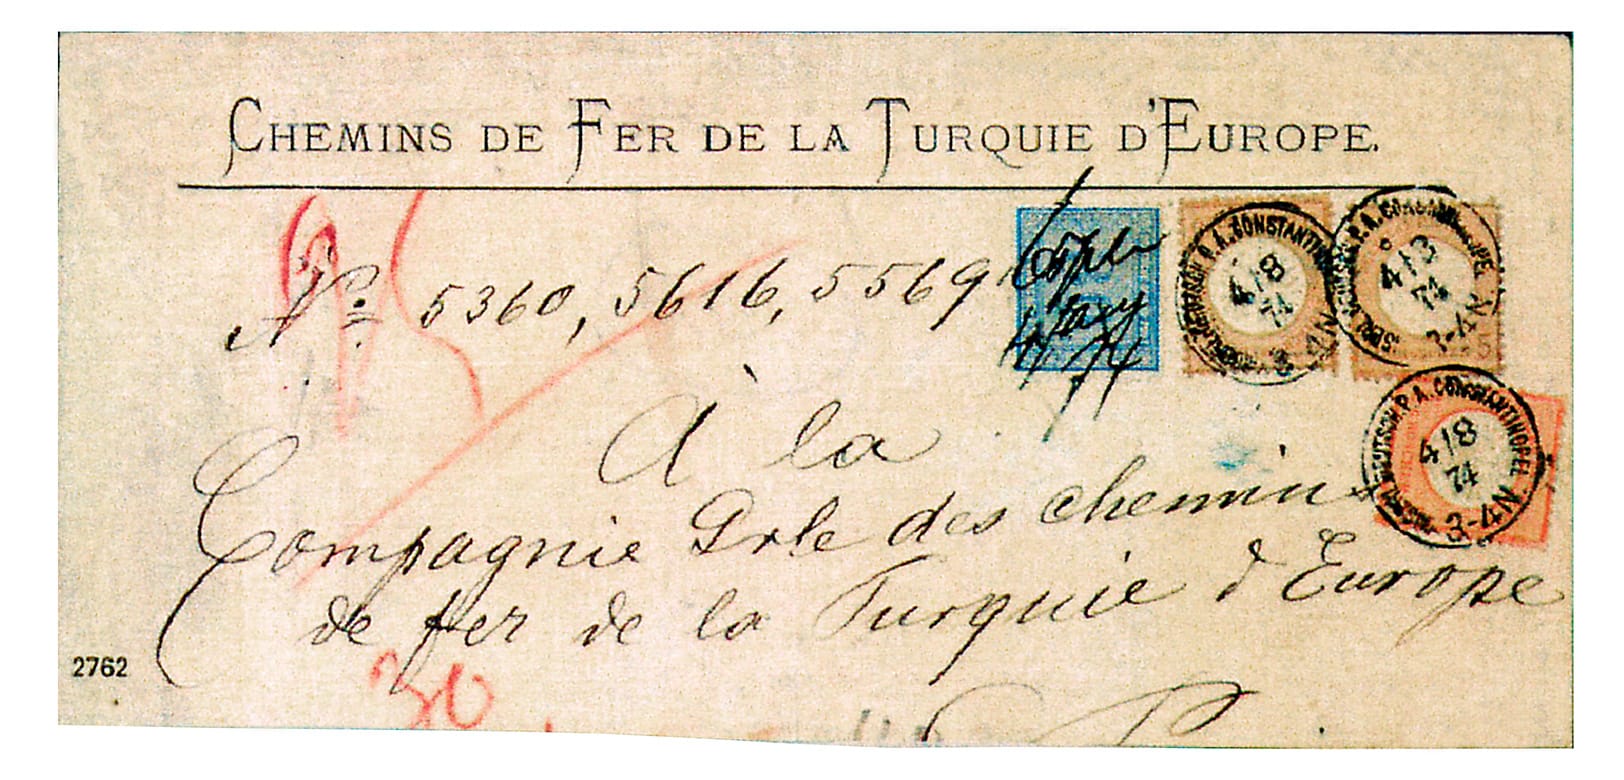 CHEMINS DE FER DE LA TURQUIE D'EUROPE.
No. 5360, 5616, 5569
74
P. A. CONSTANTINOPEL
4/8
74
P. A. CONSTANTINOPEL
4/8
74
3-4 N
DEUTSCH. P. A. CONSTANTINOPEL
4/8
74
3-4 N
À la
Compagnie Grle des chemins
de fer de la Turquie d'Europe
2762
30
P